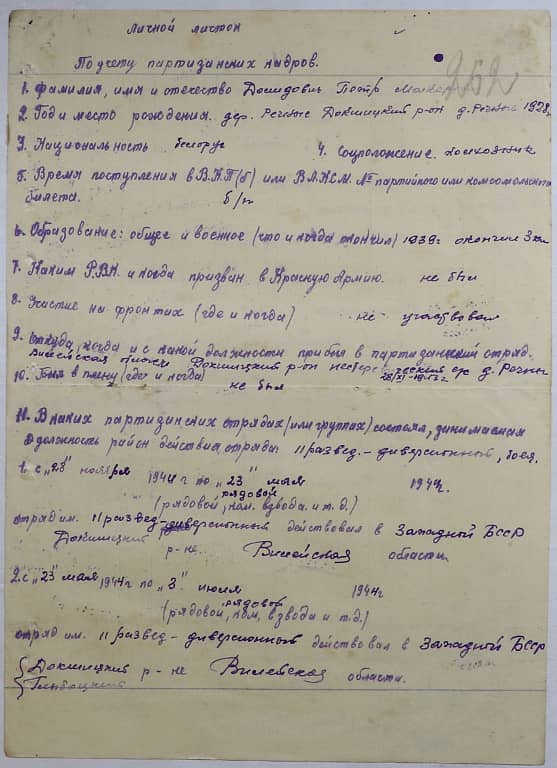 Личной листок
По учету партизанских кадров.
1. Фамилия, имя и отечество Домидовль Пётр
252
2. Год и место рождения. дер. Речные Докшицкий р-он д. Речные 1928г.
3. Национальность белорус 4. Соцположение. колхозник
5. Время поступления в В.К.П(б) или В.Л.К.С.М. № партийного или комсомольского
билета. б/п
6. Образование: общее и военное (что и когда окончил) 1939г окончил 3 кл
7. Каким Р.В.К. и когда призван в Красную Армию. не был
8. Участие на фронтах (где и когда) не участвовал
9. Откуда, когда и с какой должности прибыл в партизанский отряд.
Вилейская Докшицкий р-он д. Речные
10. Был в плену (где и когда) не был 28/XI-1943г
11. В каких партизанских отрядах (или группах) состоял, занимаемая
должность район действия отряда: 11 развед.-диверсионный, боев.
1. с "28" ноября 1944 г по "23" мая 1944г.
(рядовой, пом. взвода. и т.д.)
рядовой
отряд им. 11 развед-диверсионный действовал в Западной БССР
Докшицкий р-не. Вилейская области.
2. с "23" мая 1944г по "3" июля 1944г
(рядовой, пом, взвода и т.д.)
рядовой
отряд им. 11 развед-диверсионный действовал в Западной БССР
Докшицкий р-не Вилейская области.